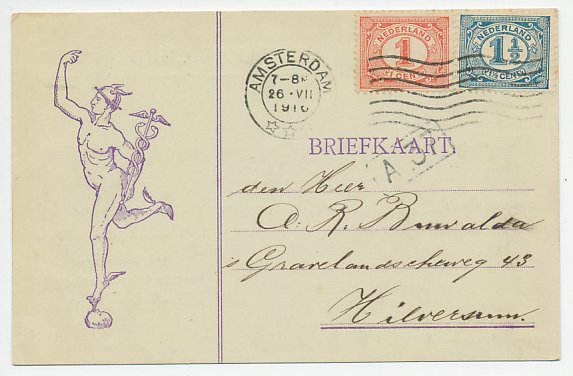 AMSTERDAM
7-8N
26 · VII
1916
NEDERLAND
1
CENT
NEDERLAND
1½
CENT
BRIEFKAART
A 37
den Heer
A. R. Buwalda
's Gravelandscheweg 43
Hilversum.